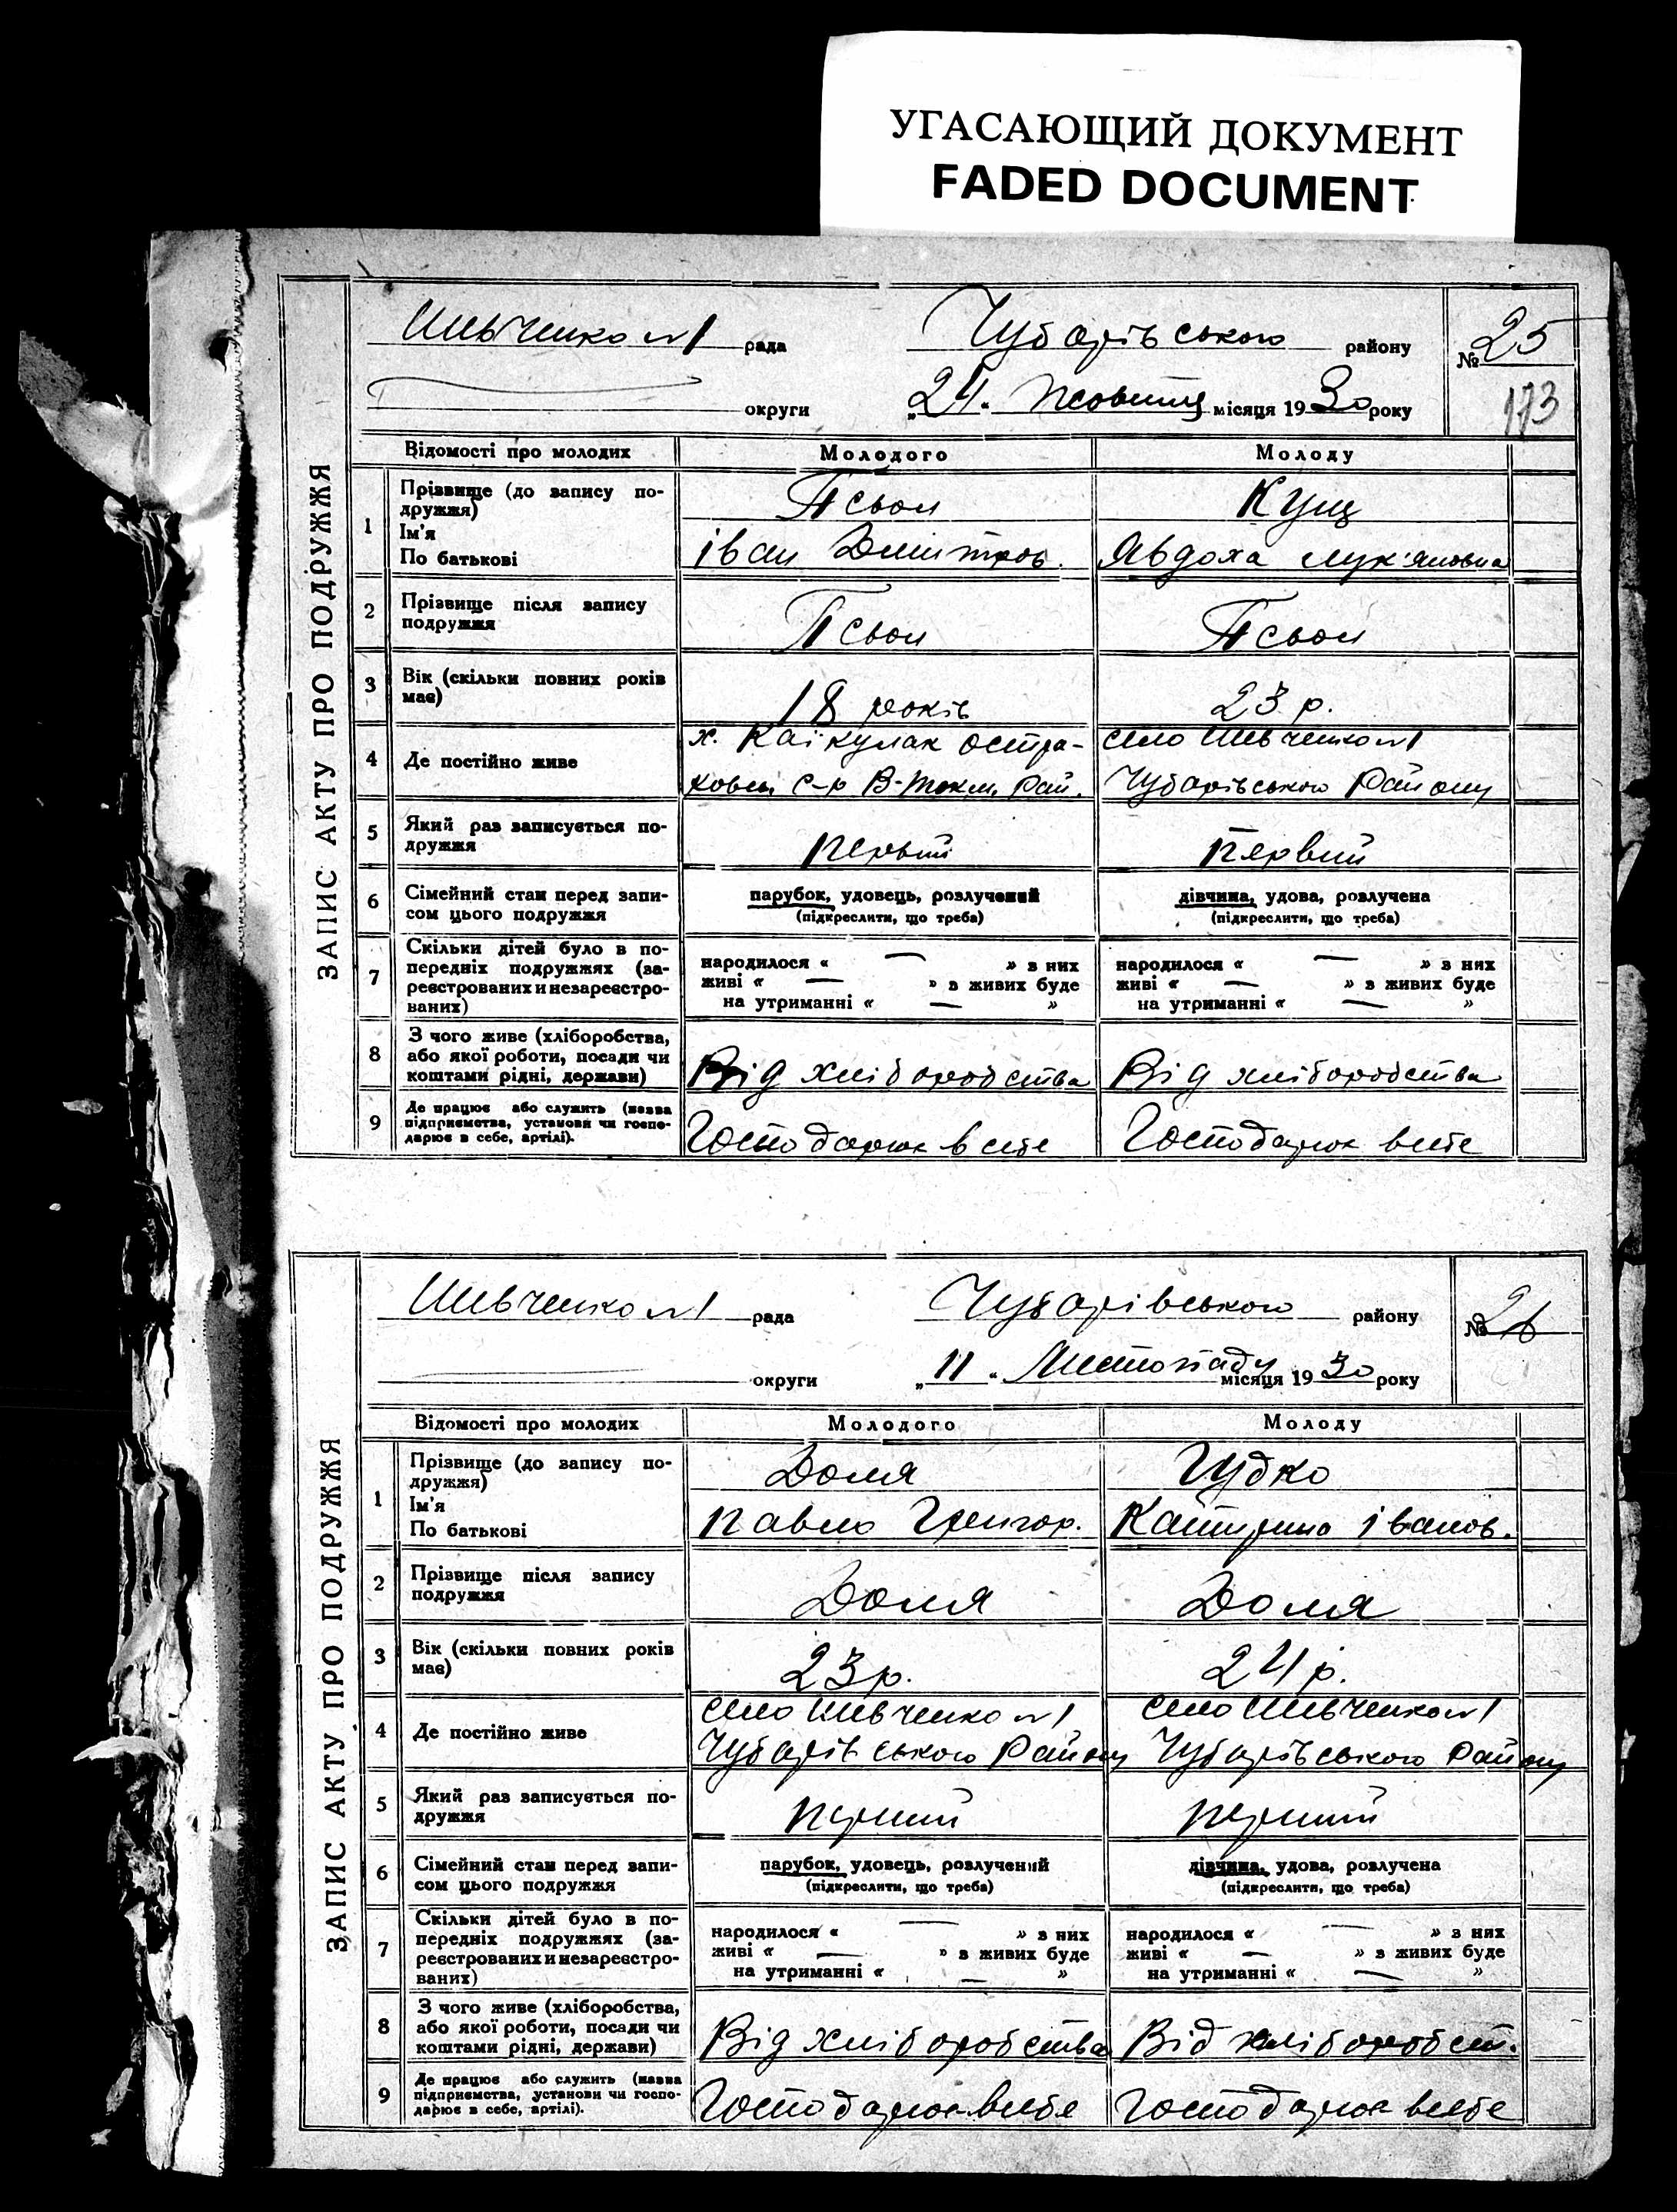 УГАСАЮЩИЙ ДОКУМЕНТ
FADED DOCUMENT
ЗАПИС АКТУ ПРО ПОДРУЖЖЯ
Шевченко №1 рада Чубарівського району № 25
округи „24“ Жовтня місяця 1930 року 173
Відомості про молодих Молодого Молоду
1 Прізвище (до запису по-
дружжя) Псьол Кущ
Ім'я
По батькові Іван Дмитров. Явдоха Лук'яновна
2 Прізвище після запису
подружжя Псьол Псьол
3 Вік (скільки повних років
має) 18 років 23 р.
4 Де постійно живе х. Каїкулак Остра- село Шевченко №1
с-р В-Токм. Рай. Чубарівського Району
5 Який раз записується по-
дружжя первий первий
6 Сімейний стан перед запи-
сом цього подружжя
парубок, удовець, розлучений дівчина, удова, розлучена
(підкреслити, що треба) (підкреслити, що треба)
7 Скільки дітей було в по-
передніх подружжях (за-
реєстрованих и незареєстро-
ваних)
народилося « — » з них народилося « — » з них
живі « — » з живих буде живі « — » з живих буде
на утриманні « — » на утриманні « — »
8 З чого живе (хліборобства,
або якої роботи, посади чи
коштами рідні, держави) Від хліборобства Від хліборобства
9 Де працює або служить (назва
підприємства, установи чи госпо-
дарює в себе, артілі). Господарює в себе Господарює в себе
ЗАПИС АКТУ ПРО ПОДРУЖЖЯ
Шевченко №1 рада Чубарівського району № 26
округи „11“ Листопаду місяця 1930 року
Відомості про молодих Молодого Молоду
1 Прізвище (до запису по-
дружжя) Доля Гудко
Ім'я
По батькові Павло Григор. Катирина Іванов.
2 Прізвище після запису
подружжя Доля Доля
3 Вік (скільки повних років
має) 23 р. 24 р.
4 Де постійно живе село Шевченко №1 село Шевченко №1
Чубарівського Району Чубарівського Району
5 Який раз записується по-
дружжя перший перший
6 Сімейний стан перед запи-
сом цього подружжя
парубок, удовець, розлучений дівчина, удова, розлучена
(підкреслити, що треба) (підкреслити, що треба)
7 Скільки дітей було в по-
передніх подружжях (за-
реєстрованих и незареєстро-
ваних)
народилося « — » з них народилося « — » з них
живі « — » з живих буде живі « — » з живих буде
на утриманні « — » на утриманні « — »
8 З чого живе (хліборобства,
або якої роботи, посади чи
коштами рідні, держави) Від хліборобства Від хліборобст.
9 Де працює або служить (назва
підприємства, установи чи госпо-
дарює в себе, артілі). Господарює в себе Господарює в себе